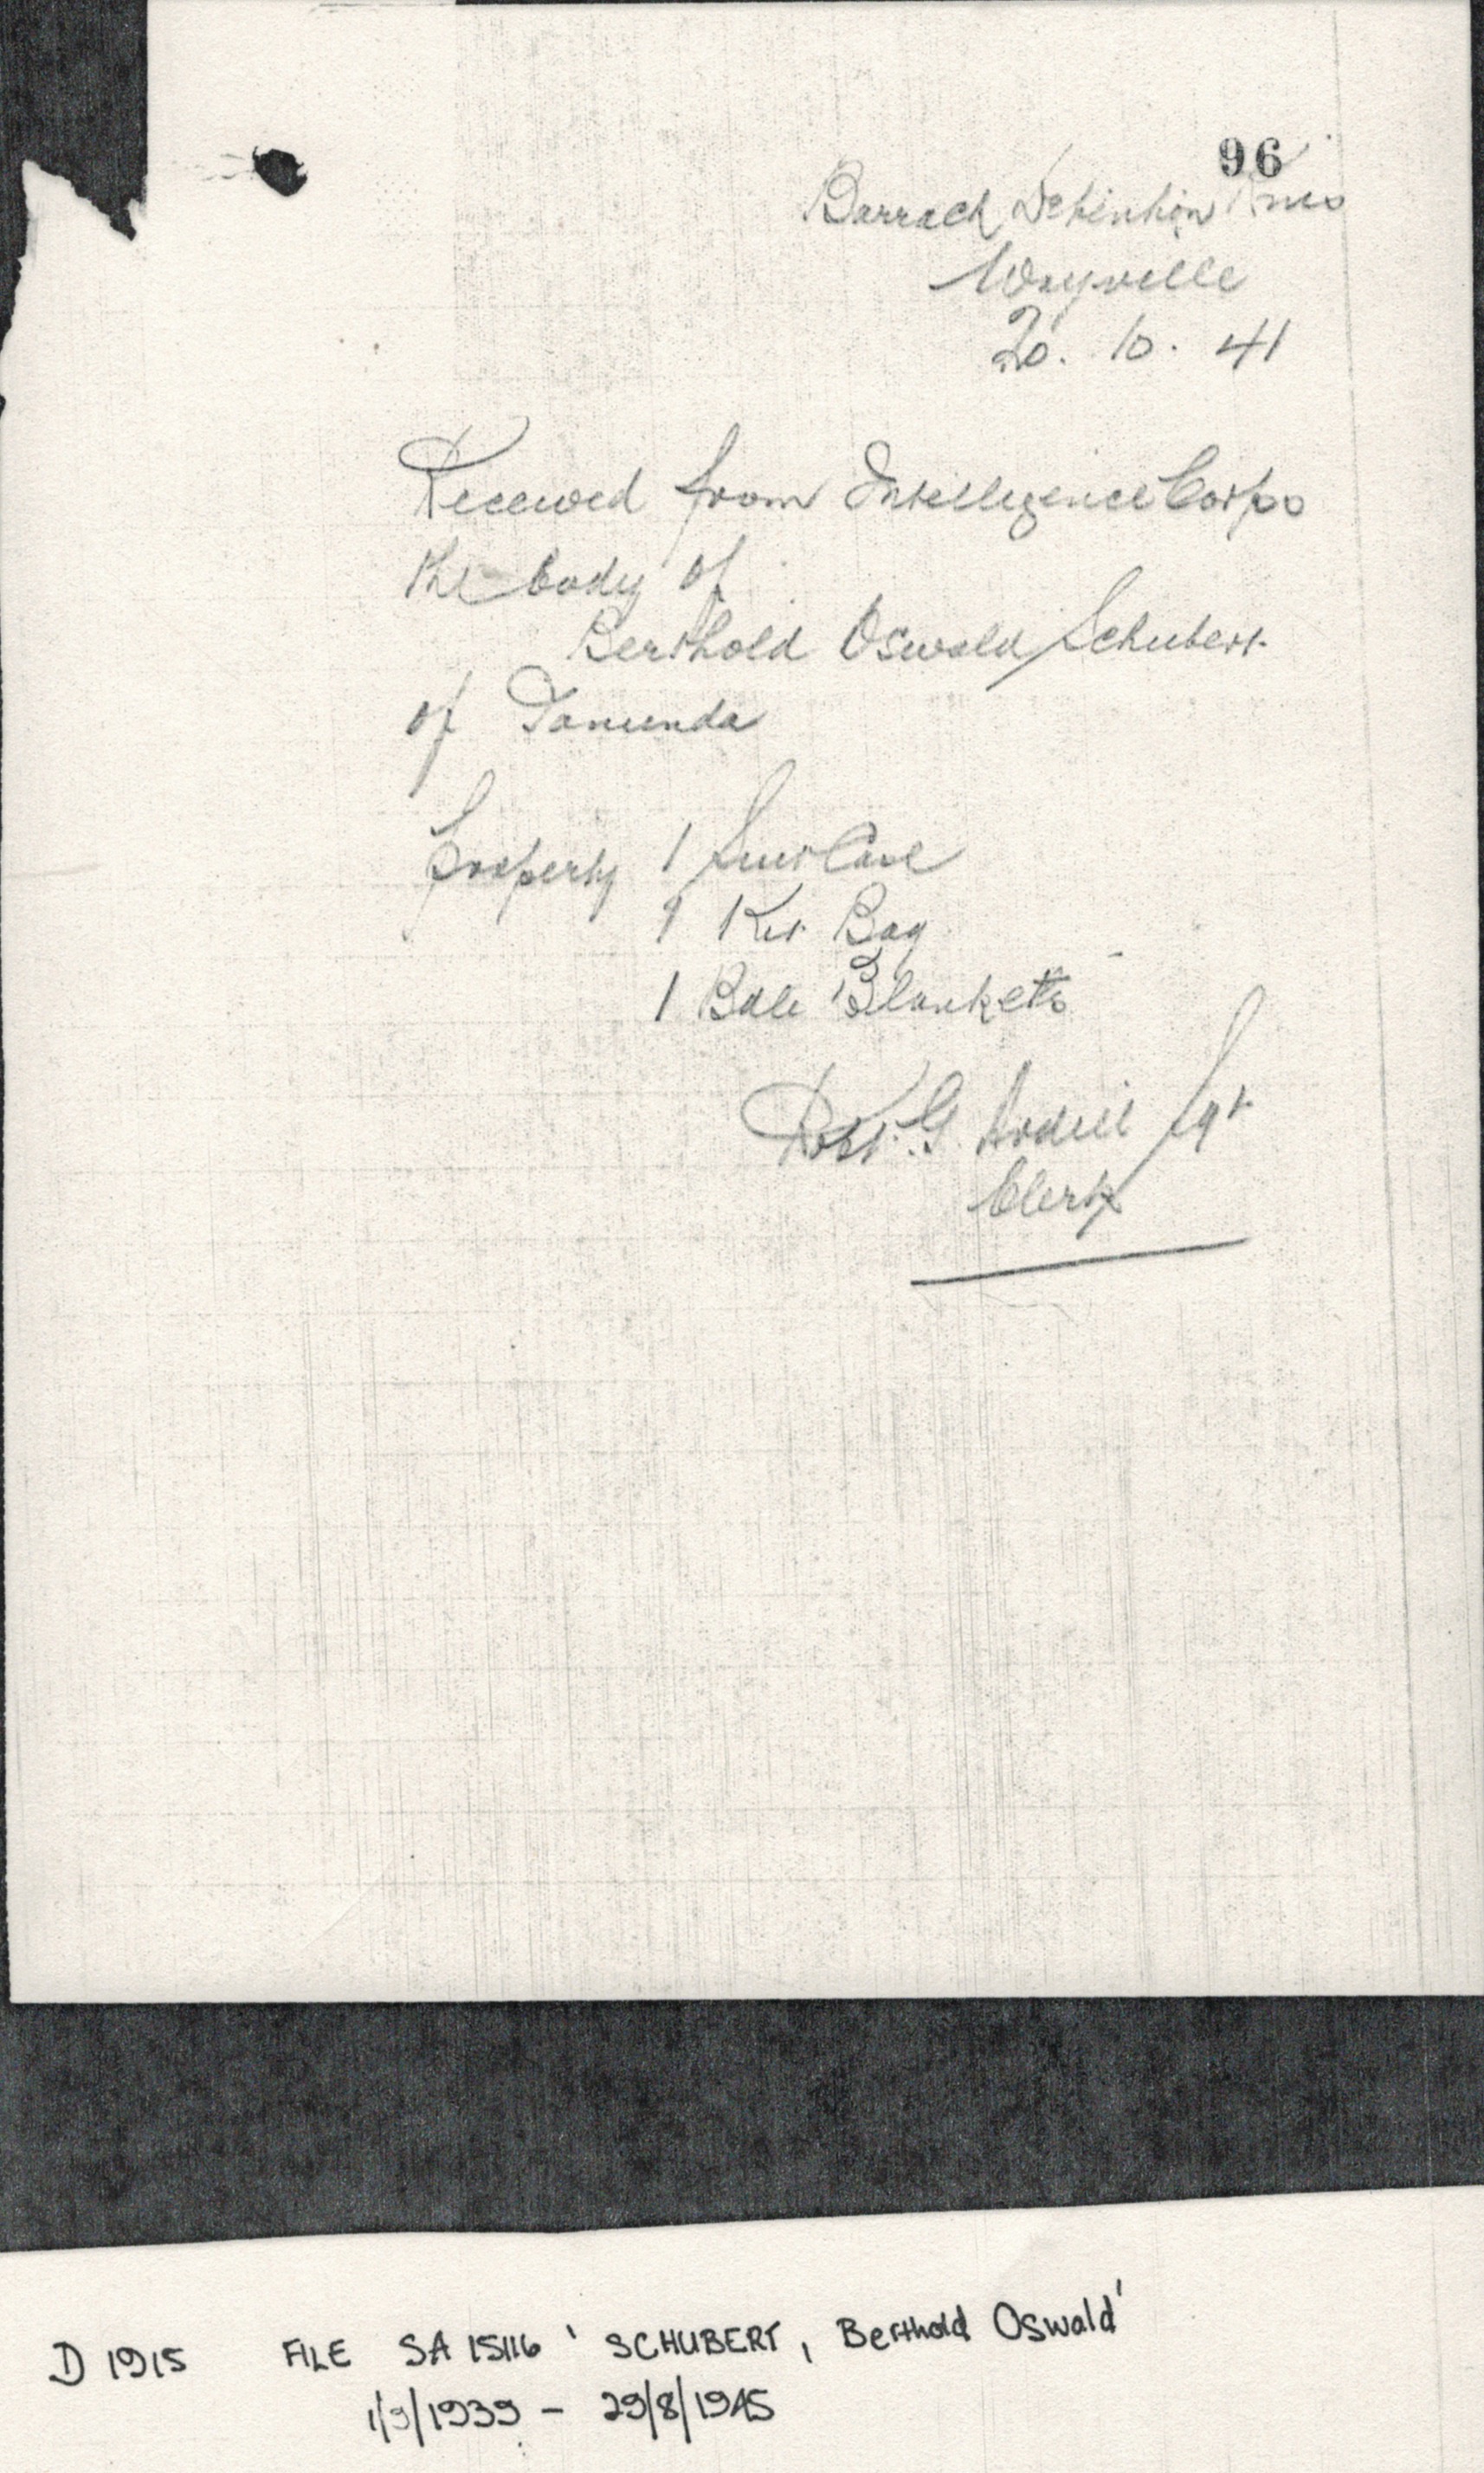 96
Barrack Detention Rms
Wayville
20. 10. 41
Received from Intelligence Corps
the body of
Berthold Oswald Schubert
of Tanunda
Property 1 Suit Case
1 Kit Bag
1 Bale Blankets
Robt. G. Sgt
Clerk
D 1915 FILE SA 15116 ' SCHUBERT, Berthold Oswald'
1/9/1939 – 29/8/1945